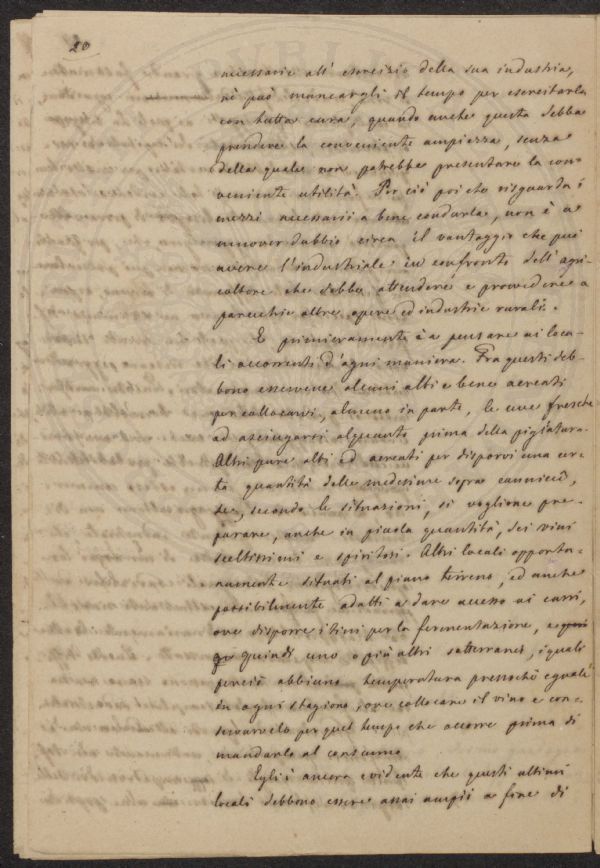 20
necessarie all' esercizio della sua industria,
nè può mancargli il tempo per esercitarla
con tutta cura, quando anche questa debba
prendere la conveniente ampiezza, senza
della quale non potrebbe presentare la con-
veniente utilità. Per ciò poi che risguarda i
mezzi necessarii a bene condurla, non è a
muover dubbio circa il vantaggio che può
avere l'industriale in confronto dell' agri-
coltore che debba attendere e provvedere a
parecchie altre opere ed industrie rurali.
E primieramente è a pensare ai loca-
li occorrenti d'ogni maniera. Fra questi deb-
bono esservene alcuni alti e bene aereati
per collocarvi, almeno in parte, le uve fresche
ad asciugarsi alquanto prima della pigiatura.
Altri pure alti ed aereati per disporvi una cer-
ta quantità delle medesime sopra cannicci,
se, secondo le situazioni, si vogliono pre-
parare, anche in piccola quantità, dei vini
sceltissimi e spiritosi. Altri locali opportu-
namente situati al piano terreno, ed anche
possibilmente adatti a dare accesso ai carri,
ove disporre i tini per la fermentazione, e
quindi uno o più altri sotterranei, i quali
perciò abbiano temperatura pressochè eguale
in ogni stagione, ove collocare il vino e con-
servarvelo per quel tempo che occorre prima di
mandarlo al consumo
Egli è ancora evidente che questi ultimi
locali debbono essere assai ampii a fine di